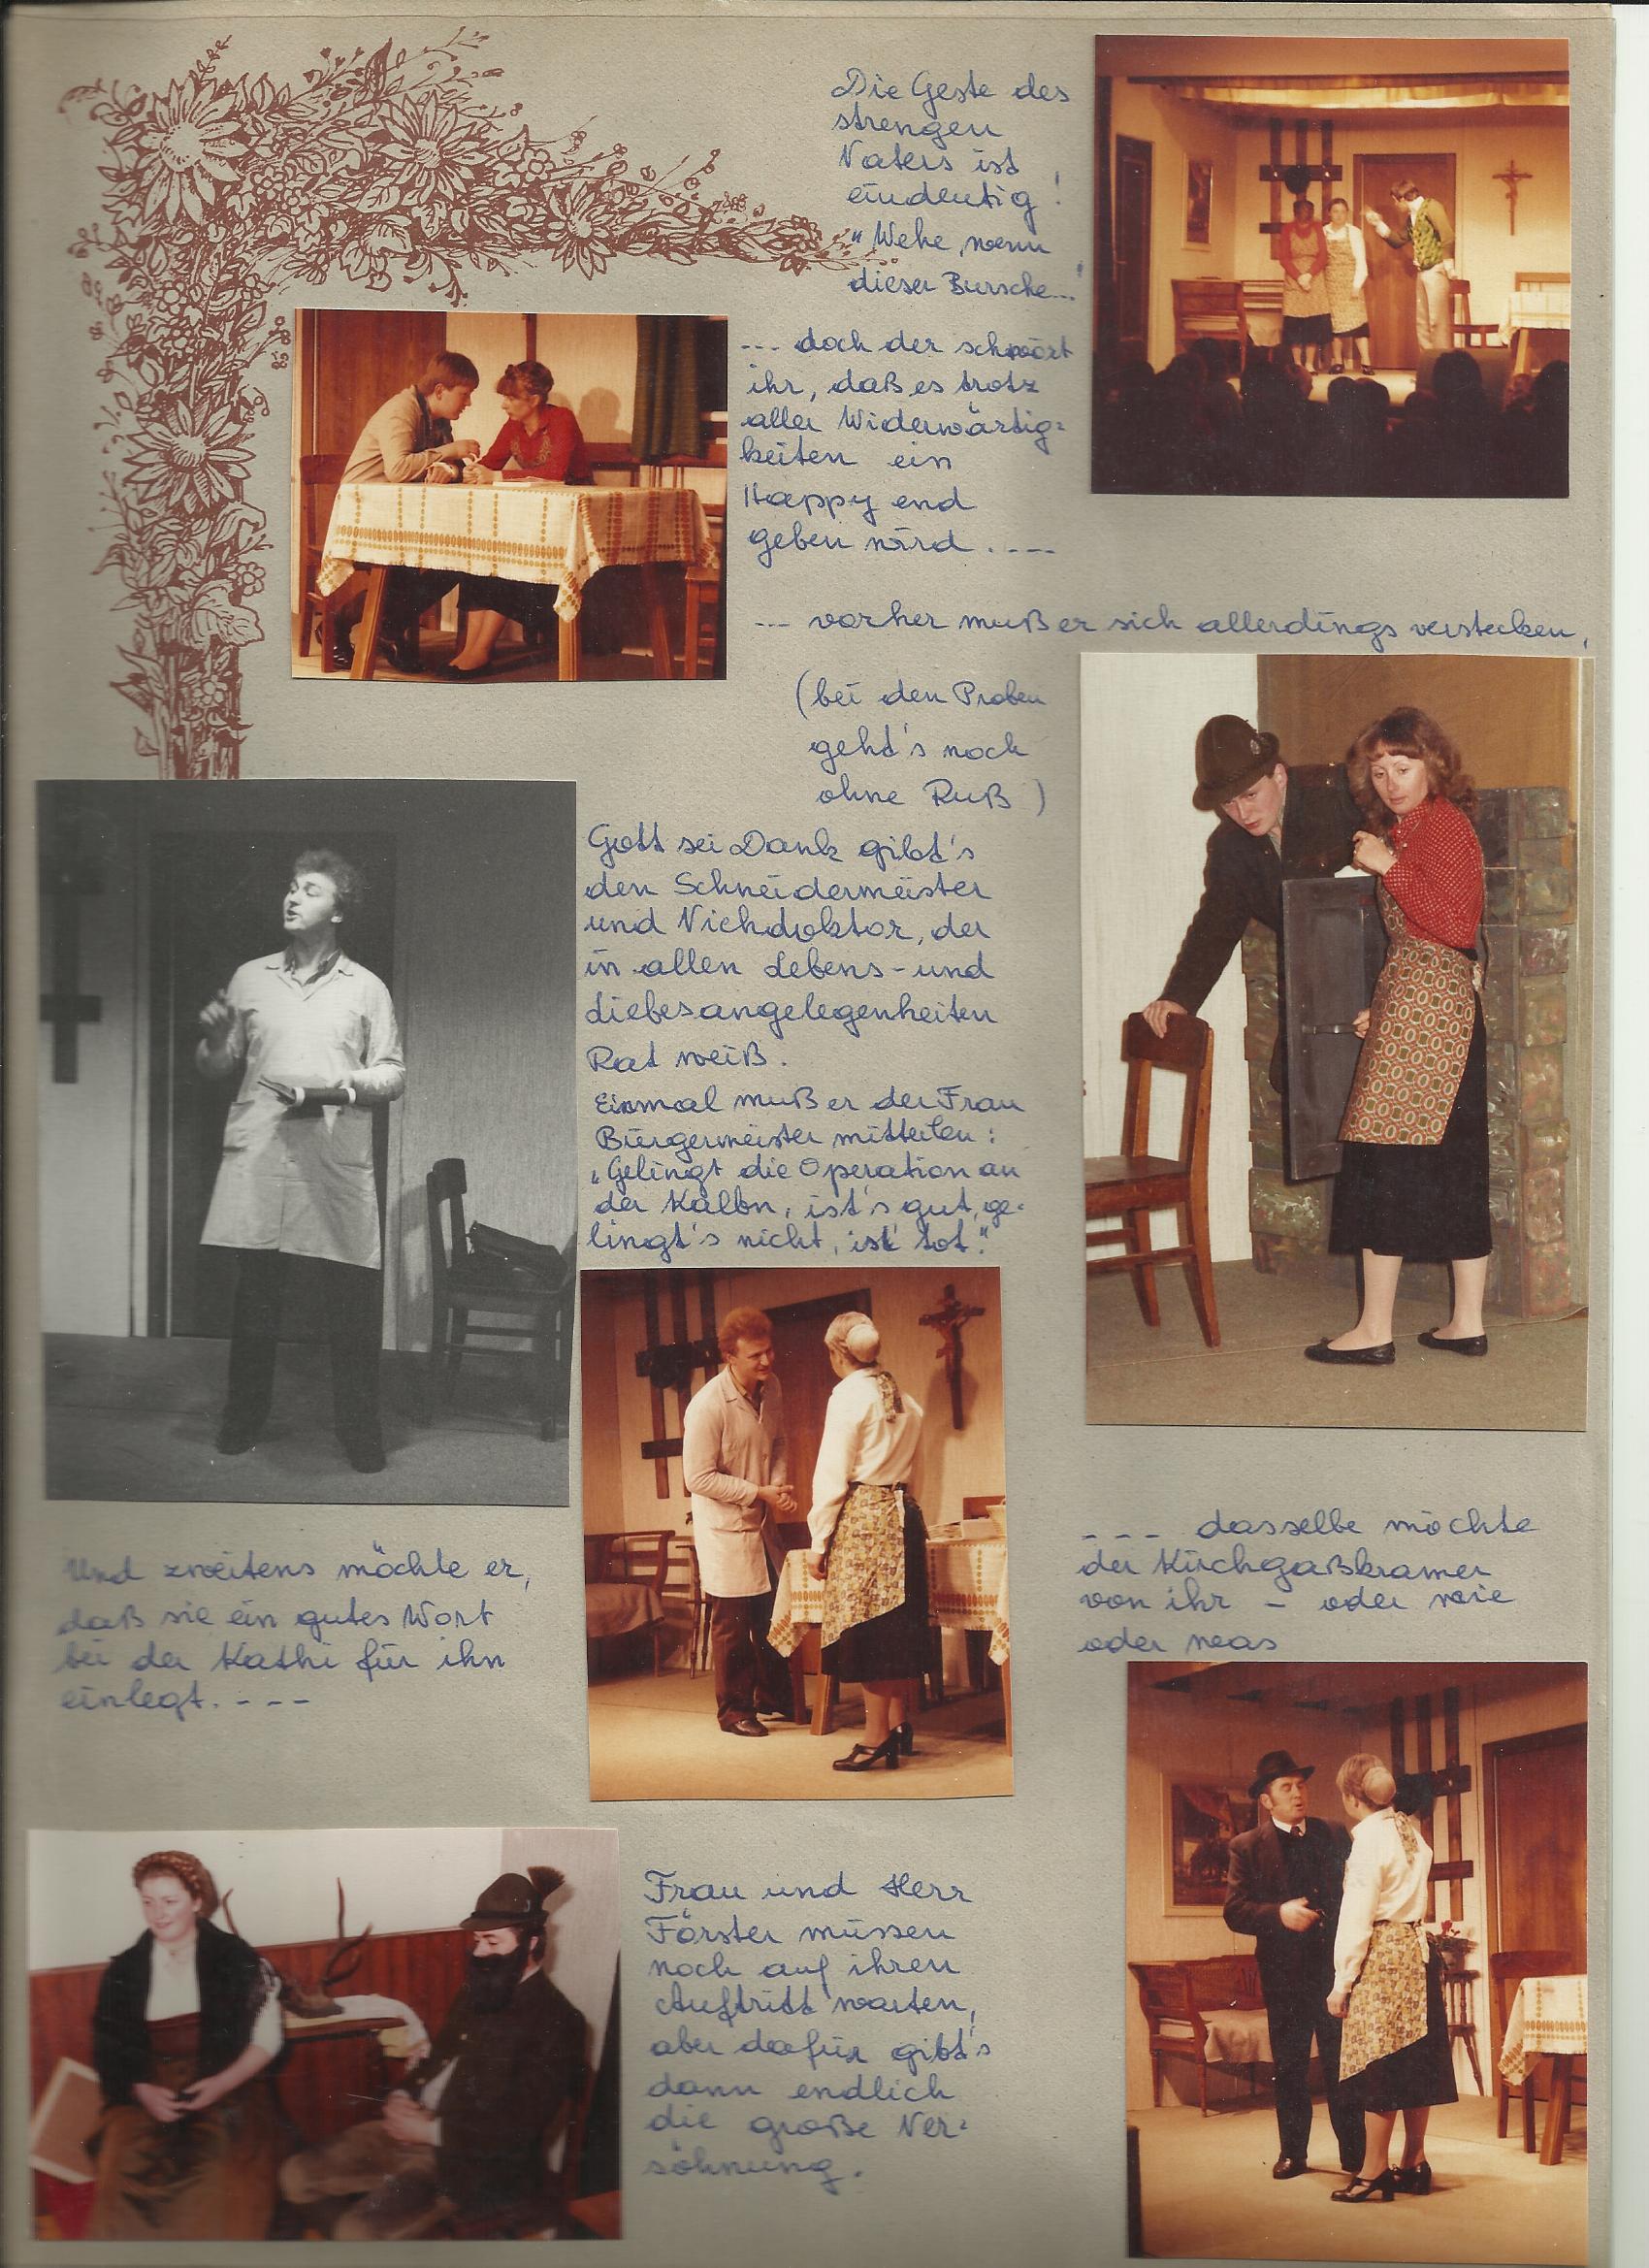 Die Geste des
strengen
Vaters ist
eindeutig!
"Wehe, wenn
dieser Bursche..."
--- doch der schwört
ihr, daß es trotz
aller Widerwärtig-
keiten ein
Happy end
geben wird. ----
--- vorher muß er sich allerdings verstecken,
(bei den Proben
geht's noch
ohne Ruß)
Gott sei Dank gibt's
den Schneidermeister
und Viehdoktor, der
in allen Lebens- und
Liebesangelegenheiten
Rat weiß.
Einmal muß er der Frau
Bürgermeister mitteilen:
„Gelingt die Operation an
der Kalbn, ist's gut, ge-
lingt's nicht, ist' tot."
Und zweitens möchte er,
daß sie ein gutes Wort
bei der Kathi für ihn
einlegt. ---
--- dasselbe möchte
der Kirchgaßkramer
von ihr - oder wie
oder was
Frau und Herr
Förster müssen
noch auf ihren
Auftritt warten,
aber dafür gibt's
dann endlich
die große Ver-
söhnung.